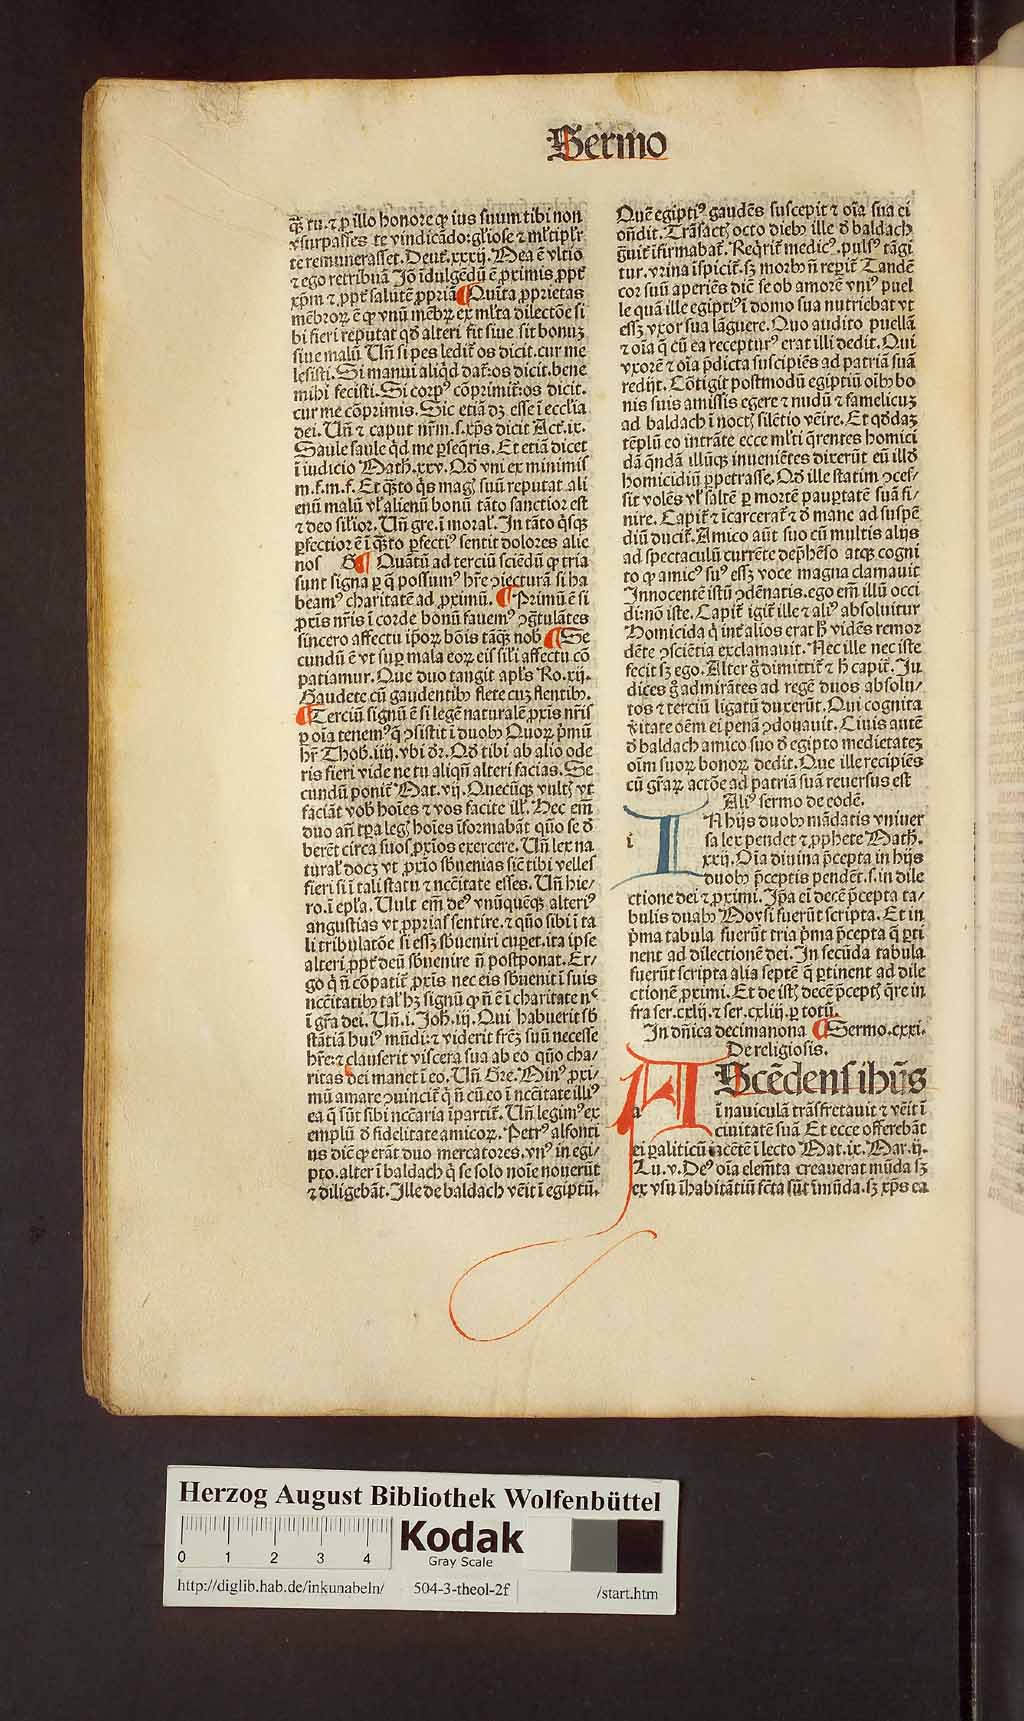 Sermo
qꝫ̄ tu. ⁊ ꝓ illo honore ꝙ ius suum tibi non
vsurpasses te vindicādo: gl̓iose ⁊ ml̓tipl̓r
te remunerasset. Deut̄. xxxij. Mea ē vltio
⁊ ego retribuā Jō īdulgēdū ē ꝓximis ꝓpt̄
xp̄m ⁊ ꝓpt̄ salutē ꝓpriā ¶ Quīta ꝓprietas
mēbroꝝ ē ꝙ vnū mēbꝝ ex ml̓ta dilectōe si
bi fieri reputat qd̄ alteri fit siue sit bonuꝫ
siue malū. Uñ si pes ledit̄ os dicit. cur me
lesisti. Si manui aliqd̄ dat̄: os dicit. bene
mihi fecisti. Si corpꝰ cōprimit̄: os dicit.
cur me cōprimis. Sic etiā dꝫ esse ī eccl̓ia
dei. Uñ ⁊ caput nr̄m. s. xp̄s dicit Act̄. ix.
Saule saule qͥd me ꝑseq̄ris. Et etiā dicet
ī iudicio Math̄. xxv. Qd̄ vni ex minimis
m. f. m. f. Et qꝫ̄to qͥs magꝭ suū reputat ali
enū malū vl̓ alienū bonū tāto sanctior est
⁊ deo sil̓ior. Uñ gre. ī moral̓. In tāto qͥsqꝫ
ꝑfectior ē ī qꝫ̄to ꝑfectiꝰ sentit dolores alie
nos G ¶ Quātū ad terciū sciēdū ꝙ tria
sunt signa ꝑ q̄ possumꝰ hr̄e ꝯiecturā si ha
beamꝰ charitatē ad ꝓximū. ¶ Primū ē si
ꝓxīs nr̄is ī corde bonū fauemꝰ ꝯgͣtulātes
sincero affectu ip̄oꝝ bōis tāqꝫ̄ nob̄ ¶ Se
cundū ē vt suꝑ mala eoꝝ eis sil̓i affectu cō
patiamur. Que duo tangit apl̓s Ro. xij.
Gaudete cū gaudentibꝫ flete cuꝫ flentibꝫ.
¶ Terciū signū ē si legē naturalē ꝓxīs nr̄is
ꝑ oīa tenemꝰ q̄ ꝯsistit ī duobꝫ Quoꝝ pͥmū
hr̄ Thob. iiij. vbi dr̄. Qd̄ tibi ab alio ode
ris fieri vide ne tu aliqn̄ alteri facias. Se
cundū ponit̄ Mat. vij. Quecūqꝫ vultꝭ vt
faciāt vob̄ hoīes ⁊ vos facite ill̓. Hec em̄
duo an̄ tp̄a legꝭ hoīes īformabāt qn̄o se d̄
berēt circa suos ꝓxīos exercere. Uñ lex na
tural̓ docꝫ vt ꝓxīo sb̄uenias sic̄ tibi velles
fieri si ī tali statu ⁊ nccītate esses. Uñ hie/
ro. ī epl̓a. Uult em̄ deꝰ vnūquēqꝫ alteriꝰ
angustias vt ꝓprias sentire. ⁊ qn̄o sibi ī ta
li tribulatōe si essꝫ sb̄ueniri cuꝑet. ita ipse
alteri ꝓpt̄ deū sb̄uenire n̄ postponat. Er/
go qͥ n̄ cōpatit̄ ꝓxīs nec eis sb̄uenit ī suis
nccītatibꝫ tal̓ hꝫ signū ꝙ n̄ ē ī charitate nᶜ
ī gr̄a dei. Uñ. i. Joh̄. iij. Qui habuerit sb̄
stātiā huiꝰ mūdi: ⁊ viderit fr̄eꝫ suū necesse
hr̄e: ⁊ clauserit viscera sua ab eo qn̄o cha/
ritas dei manet ī eo. Uñ Gre. Minꝰ ꝓxi/
mū amare ꝯuincit̄ qͥ n̄ cū eo ī nccītate illiꝰ
ea q̄ sūt sibi nccāria īpartit̄. Uñ legimꝰ ex
emplū d̄ fidelitate amicoꝝ. Petrꝰ alfonti
us diē ꝙ erāt duo mercatores. vnꝰ in egi/
pto. alter ī baldach qͥ se solo noīe nouerūt
⁊ diligebāt. Ille de baldach vēit ī egiptū.
Quē egiptiꝰ gaudēs suscepit ⁊ oīa sua ei
on̄dit. Trāsactꝭ octo diebꝫ ille d̄ baldach
gͣuit̄ īfirmabat̄. Reqͥrit̄ medicꝰ. pulsꝰ tāgi
tur. vrina īspicit̄. sꝫ morbꝫ n̄ reꝑit̄ Tandē
cor suū aperiēs diē se ob amorē vniꝰ puel
le quā ille egiptiꝰ ī domo sua nutriebat vt
essꝫ vxor sua lāguere. Quo audito puellā
⁊ oīa q̄ cū ea recepturꝰ erat illi dedit. Qui
vxorē ⁊ oīa p̄dicta suscipiēs ad patriā suā
redijt. Cōtigit postmodū egiptiū oībꝫ bo
nis suis amissis egere ⁊ nudū ⁊ famelicuꝫ
ad baldach ī noctꝭ silētio vēire. Et qd̄daꝫ
tēplū eo intrāte ecce ml̓ti q̄rentes homici
dā qn̄dā illūqꝫ inueniētes dixerūt eū illd̄
homicidiū ꝑpetrasse. Qd̄ ille statim ꝯces/
sit volēs vl̓ saltē ꝑ mortē paupertatē suā fi/
nire. Capit̄ ⁊ īcarcerat̄ ⁊ d̄ mane ad suspē
diū ducit̄. Amico aūt suo cū multis alijs
ad spectaculū currēte dep̄hēso atqꝫ cogni
to ꝙ amicꝰ suꝰ essꝫ voce magna clamauit
Innocentē istū ꝯdēnatis. ego em̄ illū occi
di: nō iste. Capit̄ igit̄ ille ⁊ aliꝰ absoluitur
Homicida qͥ int̄ alios erat h̄ vidēs remor
dēte ꝯsciētia exclamauit. Nec ille nec iste
fecit sꝫ ego. Alter gͦ dimittit̄ ⁊ h̄ capit̄. Ju
dices gͦ admirātes ad regē duos absolu/
tos ⁊ terciū ligatū duxerūt. Qui cognita
v̓itate oēm ei penā ꝯdonauit. Ciuis autē
d̄ baldach amico suo d̄ egipto medietateꝫ
oīm suoꝝ bonoꝝ dedit. Que ille recipiēs
cū gr̄aꝝ actōe ad patriā suā reuersus est
Aliꝰ sermo de eodē.
IN hijs duobꝫ mādatis vniuer
i sa lex pendet ⁊ ꝓphete Math̄.
xxij. Oīa diuina p̄cepta in hijs
duobꝫ p̄ceptis pendēt. s. in dile
ctione dei ⁊ ꝓximi. Ip̄a ei decē p̄cepta ta/
bulis duabꝫ Moysi fuerūt scripta. Et in
pͥma tabula fuerūt tria pͥma p̄cepta q̄ ꝑti
nent ad dilectionē dei. In secūda tabula
fuerūt scripta alia septē q̄ ꝑtinent ad dile
ctionē ꝓximi. Et de istꝭ decē p̄ceptꝭ q̄re in
fra ser. cxlij. ⁊ ser. cxliij. ꝑ totū.
In dn̄ica decimanona ¶ Sermo. cxxi.
De religiosis.
AScēdens ihūs
a ī nauiculā trāsfretauit ⁊ vēit ī
ciuitatē suā Et ecce offerebāt
ei ꝑaliticū iacētē ī lecto Mat. ix. Mar. ij.
Lu. v. Deꝰ oīa elem̄ta creauerat mūda sꝫ
ex vsu īhabitātiū fc̄ta sūt īmūda. sꝫ xp̄s ea
Herzog August Bibliothek Wolfenbüttel
0 1 2 3 4
Kodak
Gray Scale
http://diglib.hab.de/inkunabeln/ 504-3-theol-2f /start.htm